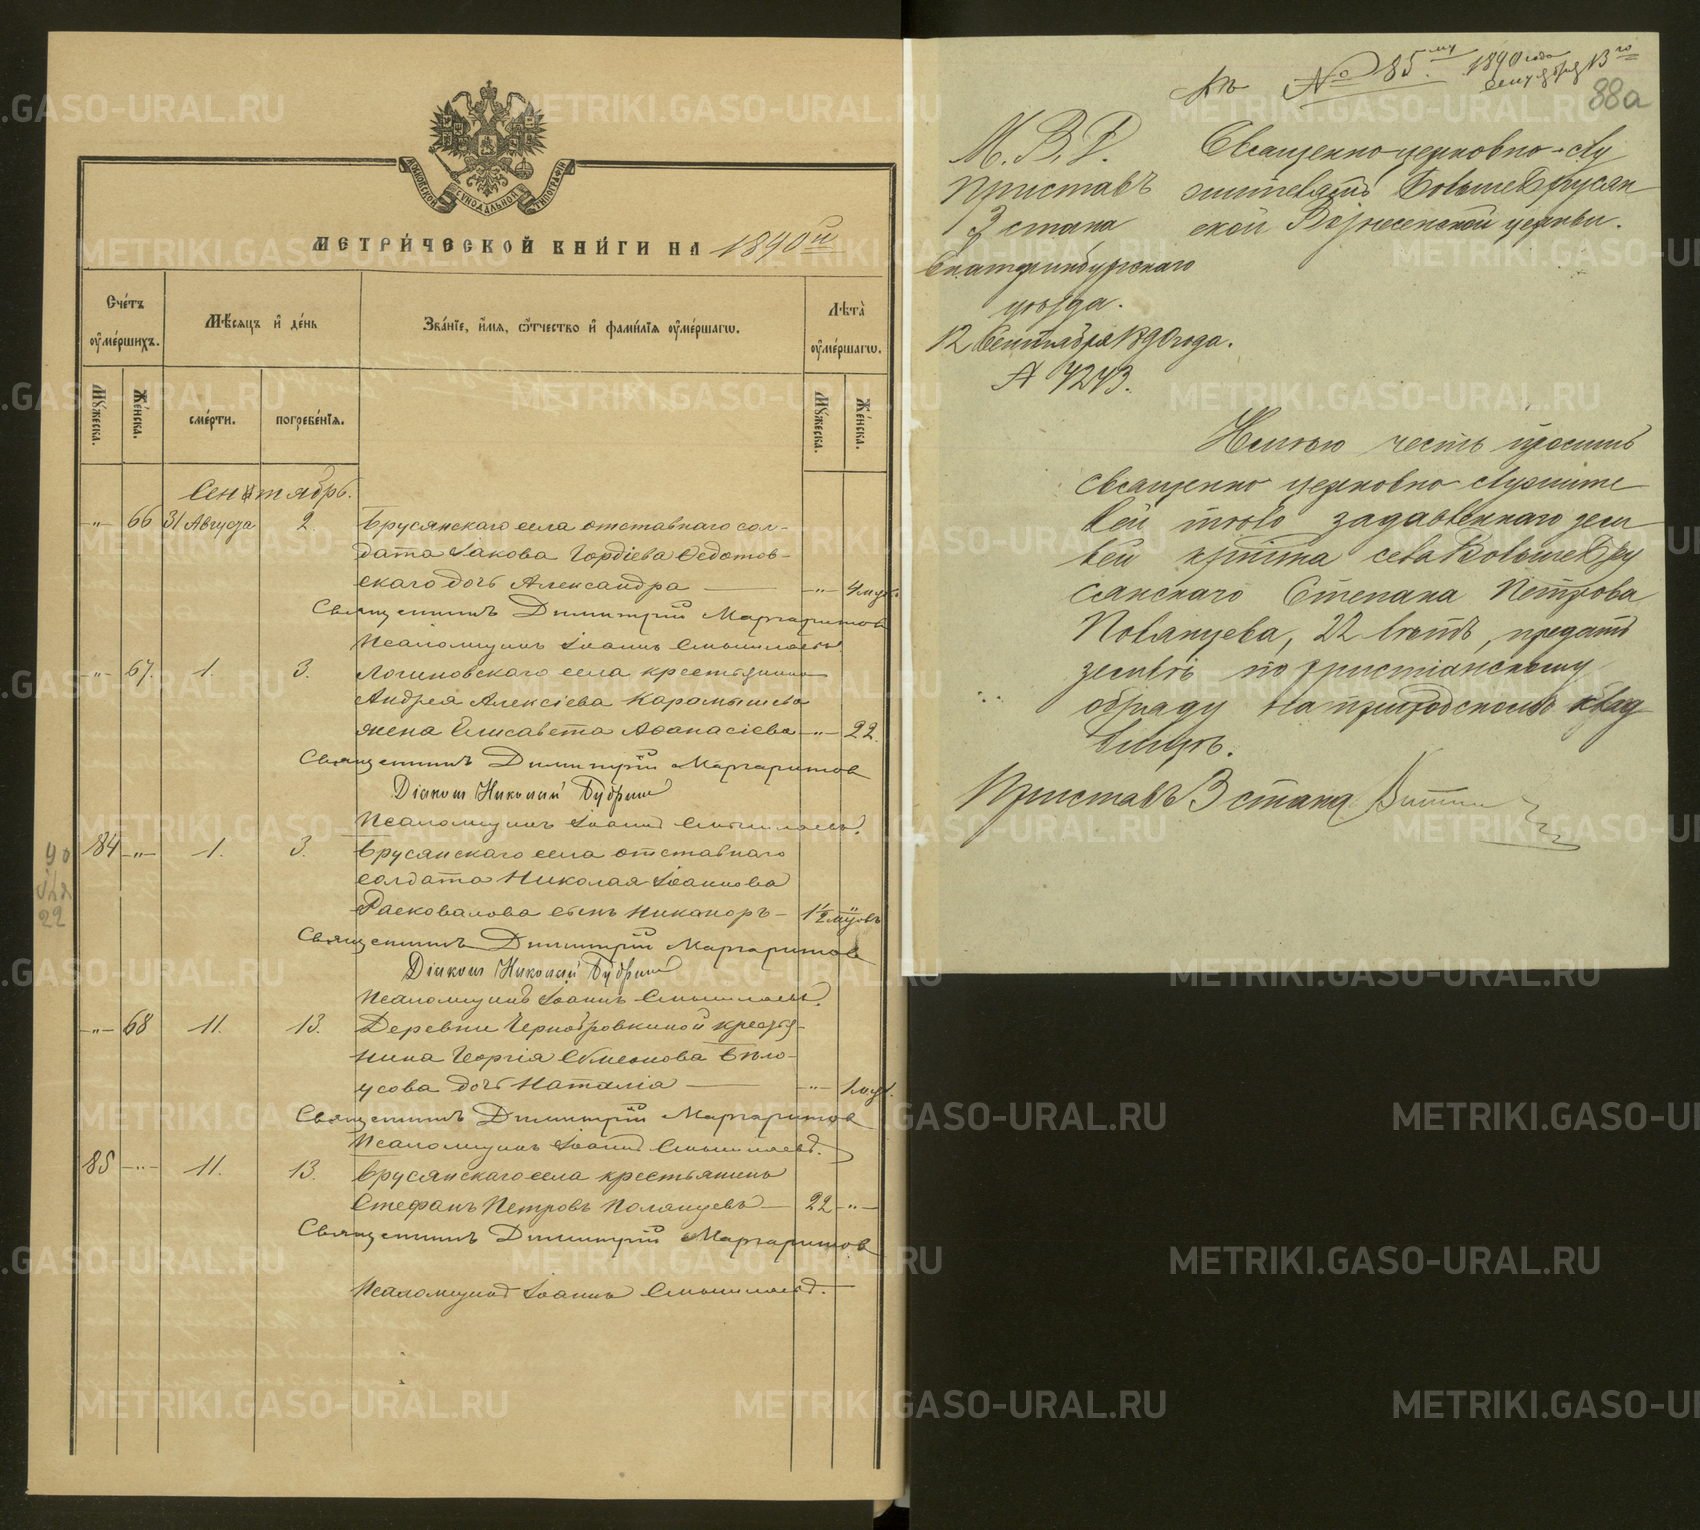 МОСКОВСКОЙ СѴНОДАЛЬНОЙ ТИПОГРАФІИ
МЕТРИ́ЧЕСКОЙ КНИ́ГИ НА 1890й
Сче́тъ ᲂу҆ме́ршихъ.
Мѣ́сяцъ и҆ де́нь
Зва́нїе, и҆́мя, ѻ҆́тчество и҆ фами́лїя ᲂу҆ме́ршагѡ.
Лѣта̀ ᲂу҆ме́ршагѡ.
Мꙋ́жеска.
Же́нска.
сме́рти.
погребе́нїя.
Мꙋ́жеска.
Же́нска.
Сентябрь.
-"- 66 31 Августа 2. Брусянскаго села отставнаго сол-
дата Іакова Гордіева Ѳедотов-
скаго дочь Александра — -"-
Священникъ Димитрій Маргаритовъ
Псаломщикъ Іоаннъ
-"- 67. 1. 3. Логиновскаго села крестьянина
Андрея Алексіева Карамышева
жена Елисавета Аѳанасіева -"- 22.
Священникъ Димитрій Маргаритовъ
Діаконъ Николай
Псаломщикъ Іоаннъ
184 -"- 1. 3. Брусянскаго села отставнаго
солдата Николая Іоаннова
Расковалова сынъ Никаноръ - 1 1/2
Священникъ Димитрій Маргаритовъ
Діаконъ Николай
Псаломщикъ Іоаннъ
-"- 68 11. 13. Деревни Чернобровкиной крестья-
нина Георгія Симеонова Бѣло-
усова дочь Наталія — -"-
Священникъ Димитрій Маргаритовъ
Псаломщикъ Іоаннъ
85 -"- 11. 13. Брусянскаго села крестьянинъ
Стефанъ Петровъ Полянцевъ — 22 -"-
Священникъ Димитрій Маргаритовъ
Псаломщикъ Іоаннъ
22
Къ № 85му 1890 года сентября 13го
88а
М. В. Д.
Приставъ
3 стана
Екатеринбургскаго
уѣзда.
12 Сентября 1890 года.
№ 7273.
Священно-церковно-слу
жителямъ Больше Брусян
ской Вознесенской церкви.
Имѣю честь просить
священно церковно служите
лей тѣло задавленнаго зем
лей кр-на села Больше Бру
сянскаго Степана Петрова
Полянцева, 22 лѣтъ, предать
землѣ по христіанскому
обряду на приходскомъ клад
бищѣ.
Приставъ 3 стана
METRIKI.GASO-URAL.RU